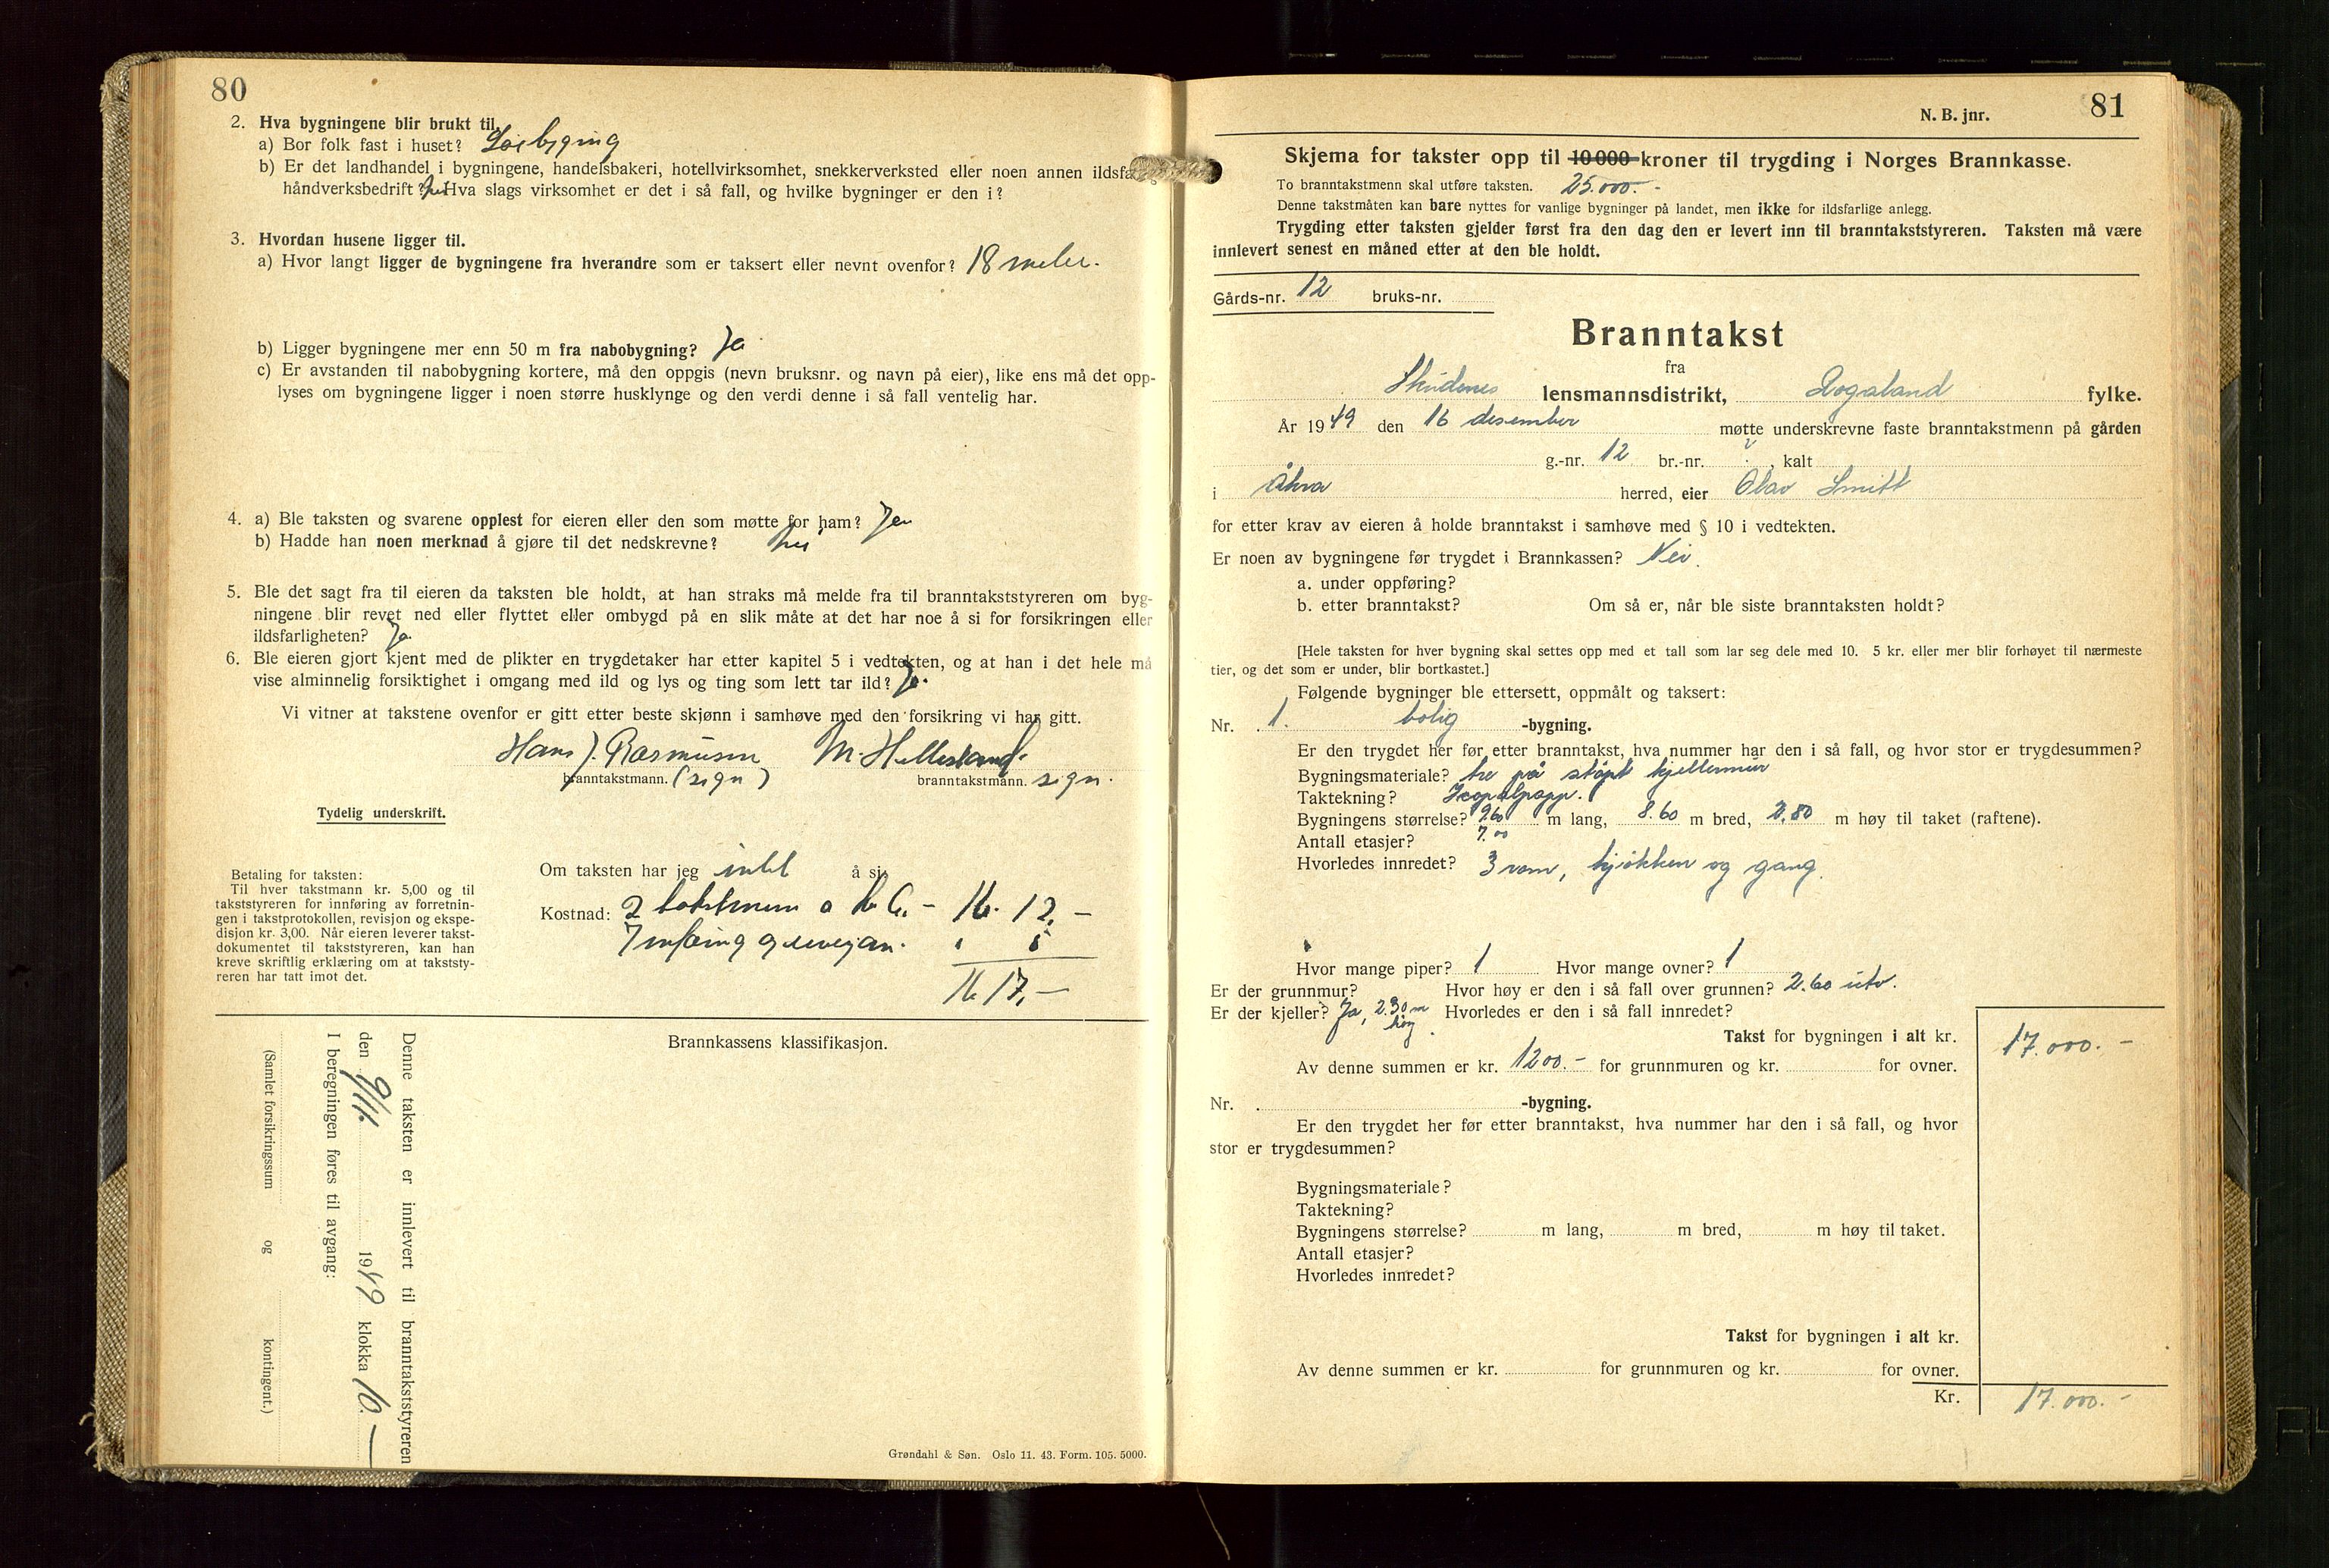 80
2. Hva bygningene blir brukt til.
a) Bor folk fast i huset?
b) Er det landhandel i bygningene, handelsbakeri, hotellvirksomhet, snekkerverksted eller noen annen
håndverksbedrift? Hva slags virksomhet er det i så fall, og hvilke bygninger er den i?
3. Hvordan husene ligger til.
a) Hvor langt ligger de bygningene fra hverandre som er taksert eller nevnt ovenfor? 18 meter.
b) Ligger bygningene mer enn 50 m fra nabobygning? Ja
c) Er avstanden til nabobygning kortere, må den oppgis (nevn bruksnr. og navn på eier), like ens må det opp-
lyses om bygningene ligger i noen større husklynge og den verdi denne i så fall ventelig har.
4. a) Ble taksten og svarene opplest for eieren eller den som møtte for ham? Ja
b) Hadde han noen merknad å gjøre til det nedskrevne? nei
5. Ble det sagt fra til eieren da taksten ble holdt, at han straks må melde fra til branntakststyreren om byg-
ningene blir revet ned eller flyttet eller ombygd på en slik måte at det har noe å si for forsikringen eller
ildsfarligheten? Ja.
6. Ble eieren gjort kjent med de plikter en trygdetaker har etter kapitel 5 i vedtekten, og at han i det hele må
vise alminnelig forsiktighet i omgang med ild og lys og ting som lett tar ild? Ja.
Vi vitner at takstene ovenfor er gitt etter beste skjønn i samhøve med den forsikring vi har gitt.
Hans J. Rasmussen M. Hellesland.
branntakstmann. (sign) branntakstmann. sign.
Tydelig underskrift.
Betaling for taksten:
Til hver takstmann kr. 5,00 og til
takststyreren for innføring av forretnin-
gen i takstprotokollen, revisjon og ekspe-
disjon kr. 3,00. Når eieren leverer takst-
dokumentet til takststyreren, kan han
kreve skriftlig erklæring om at takststy-
reren har tatt imot det.
Om taksten har jeg intet å si.
Kostnad: 2 takstmenn a kr 6.- kr. 12.-
5
kr 17,-
Denne taksten er innlevert til branntakststyreren
den 19 49 klokka 10.—
I beregningen føres til avgang:
(Samlet forsikringssum og kontingent.)
Brannkassens klassifikasjon.
Grøndahl & Søn. Oslo 11. 43. Form. 105. 5000.
81
N. B. jnr.
Skjema for takster opp til 10 000 kroner til trygding i Norges Brannkasse.
To branntakstmenn skal utføre taksten. 25.000.-
Denne takstmåten kan bare nyttes for vanlige bygninger på landet, men ikke for ildsfarlige anlegg.
Trygding etter taksten gjelder først fra den dag den er levert inn til branntakststyreren. Taksten må være
innlevert senest en måned etter at den ble holdt.
Gårds-nr. 12 bruks-nr.
Branntakst
fra
Skudenes lensmannsdistrikt, Rogaland fylke.
År 1949 den 16 desember møtte underskrevne faste branntakstmenn på gården
g.-nr. 12 br.-nr. ? , kalt
i Åkra herred, eier Olav Smitt
for etter krav av eieren å holde branntakst i samhøve med § 10 i vedtekten.
Er noen av bygningene før trygdet i Brannkassen? Nei.
a. under oppføring?
b. etter branntakst? Om så er, når ble siste branntaksten holdt?
[Hele taksten for hver bygning skal settes opp med et tall som lar seg dele med 10. 5 kr. eller mer blir forhøyet til nærmeste
tier, og det som er under, blir bortkastet.]
Følgende bygninger ble ettersett, oppmålt og taksert:
Nr. 1. bolig -bygning.
Er den trygdet her før etter branntakst, hva nummer har den i så fall, og hvor stor er trygdesummen?
Bygningsmateriale? tre på støpt kjellermur
Taktekning? Icopalpapp.
Bygningens størrelse? 9.60 m lang, 8.60 m bred, 2.80 m høy til taket (raftene).
Antall etasjer? 7.00
Hvorledes innredet? 3 rom, kjøkken og gang.
Hvor mange piper? 1 Hvor mange ovner? 1
Er der grunnmur? Hvor høy er den i så fall over grunnen? 2.60 utv.
Er der kjeller? Ja, 2.30 m høy. Hvorledes er den i så fall innredet?
Takst for bygningen i alt kr. 17.000.-
Av denne summen er kr. 1200.- for grunnmuren og kr. for ovner.
Nr. -bygning.
Er den trygdet her før etter branntakst, hva nummer har den i så fall, og hvor
stor er trygdesummen?
Bygningsmateriale?
Taktekning?
Bygningens størrelse? m lang, m bred, m høy til taket.
Antall etasjer?
Hvorledes innredet?
Takst for bygningen i alt kr.
Av denne summen er kr. for grunnmuren og kr. for ovner.
Kr. 17.000.-